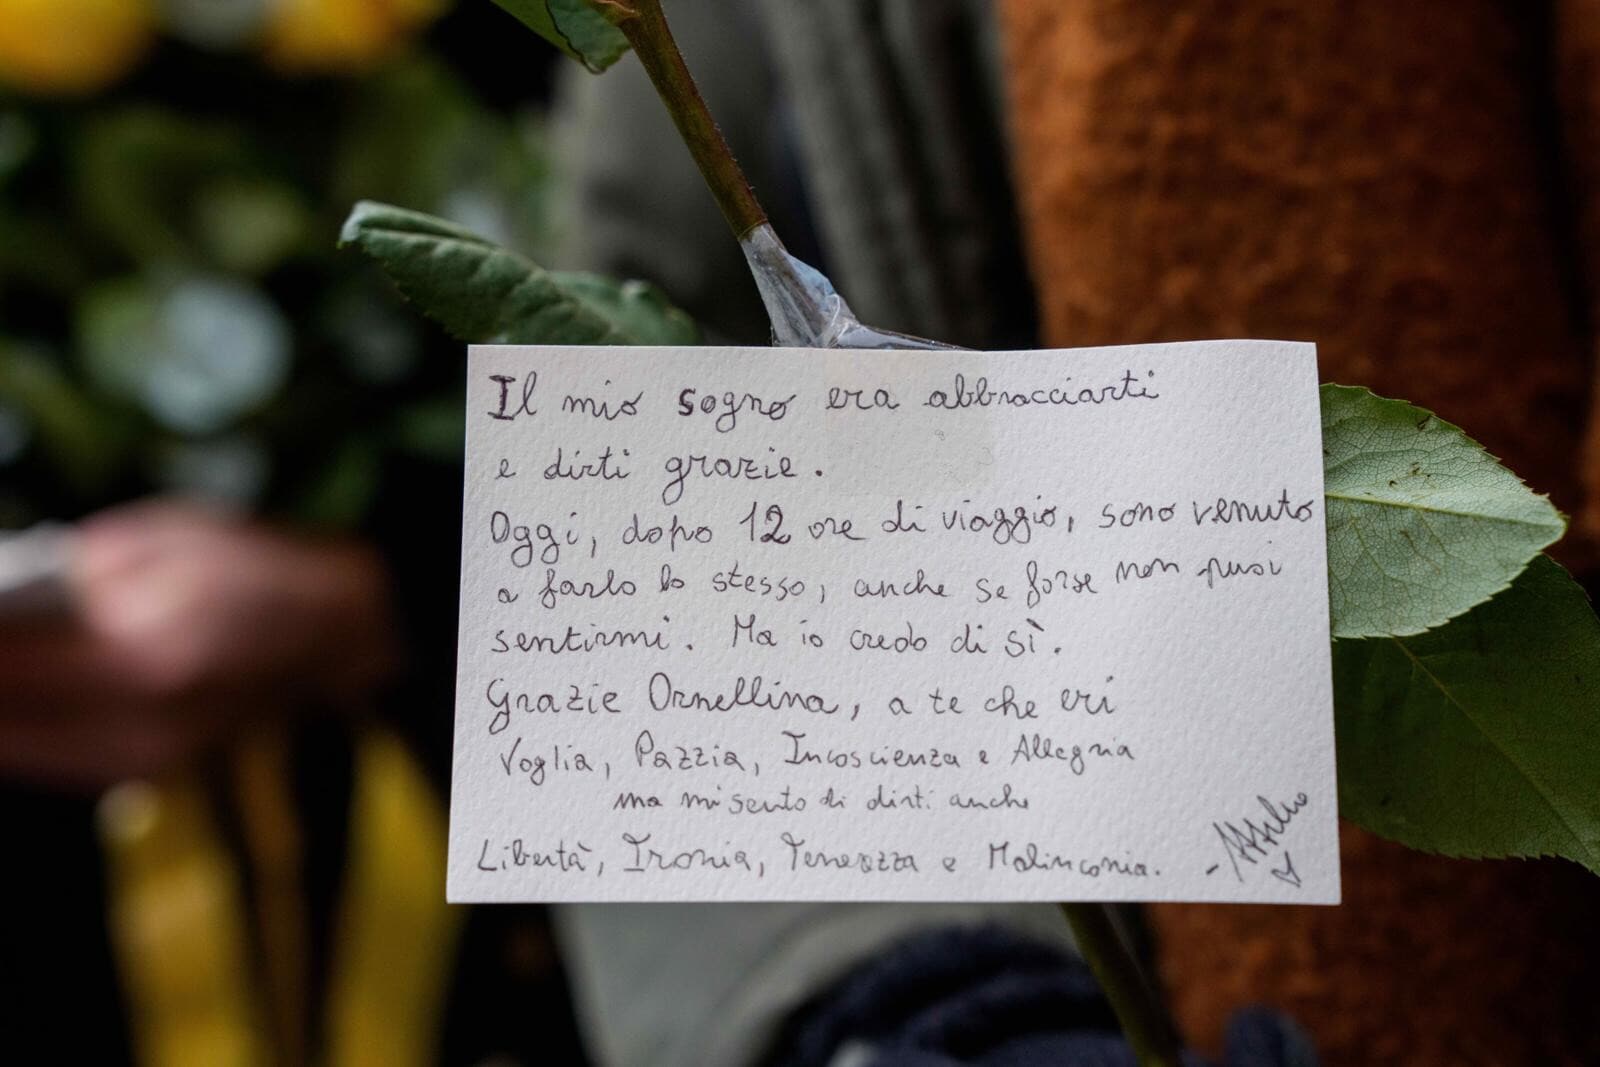 Il mio sogno era abbracciarti
e dirti grazie.
Oggi, dopo 12 ore di viaggio, sono venuto
a farlo lo stesso, anche se forse non puoi
sentirmi. Ma io credo di sì.
Grazie Ornellina, a te che eri
Voglia, Pazzia, Incoscienza e Allegria
ma mi sento di dirti anche
Libertà, Ironia, Tenerezza e Malinconia.